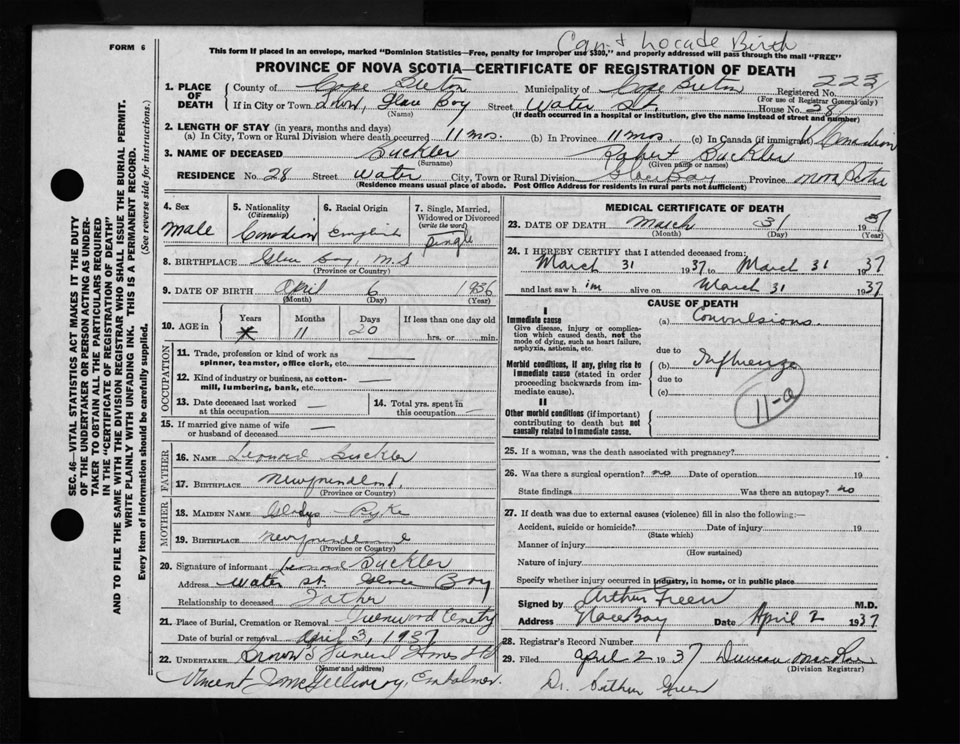 FORM 6
Can't Locate Birth
This form if placed in an envelope, marked "Dominion Statistics—Free, penalty for improper use $300," and properly addressed will pass through the mail "FREE"
PROVINCE OF NOVA SCOTIA—CERTIFICATE OF REGISTRATION OF DEATH
SEC. 46—VITAL STATISTICS ACT MAKES IT THE DUTY
OF THE UNDERTAKER OR PERSON ACTING AS UNDER-
TAKER TO OBTAIN ALL THE PARTICULARS REQUIRED
IN THE "CERTIFICATE OF REGISTRATION OF DEATH"
AND TO FILE THE SAME WITH THE DIVISION REGISTRAR WHO SHALL ISSUE THE BURIAL PERMIT.
WRITE PLAINLY WITH UNFADING INK. THIS IS A PERMANENT RECORD.
Every item of information should be carefully supplied. (See reverse side for instructions.)
1. PLACE OF DEATH County of Cape Breton Municipality of Cape Breton Registered No. 223
(For use of Registrar General only)
If in City or Town Town, Glace Bay Street Water St. House No. 28
(Name) (If death occurred in a hospital or institution, give name instead of street and number)
2. LENGTH OF STAY (in years, months and days)
(a) In City, Town or Rural Division where death occurred 11 mos. (b) In Province 11 mos (c) In Canada (if immigrant) Canadian
3. NAME OF DECEASED Buckler Robert Buckler
(Surname) (Given name or names)
RESIDENCE No. 28 Street Water City, Town or Rural Division Glace Bay Province Nova Scotia
(Residence means usual place of abode. Post Office Address for residents in rural parts not sufficient)
4. Sex Male
5. Nationality (Citizenship) Canadian
6. Racial Origin English
7. Single, Married, Widowed or Divorced (write the word) Single
8. BIRTHPLACE Glace Bay, N.S
(Province or Country)
9. DATE OF BIRTH April 6 1936
(Month) (Day) (Year)
10. AGE in Years Months 11 Days 20 If less than one day old
hrs. or min.
OCCUPATION
11. Trade, profession or kind of work as spinner, teamster, office clerk, etc. —
12. Kind of industry or business, as cotton-mill, lumbering, bank, etc. —
13. Date deceased last worked at this occupation —
14. Total yrs. spent in this occupation —
15. If married give name of wife or husband of deceased —
FATHER
16. NAME Leonard Buckler
17. BIRTHPLACE Newfoundland,
(Province or Country)
MOTHER
18. MAIDEN NAME Gladys Pyke
19. BIRTHPLACE Newfoundland
(Province or Country)
20. Signature of informant Leonard Buckler
Address Water St. Glace Bay
Relationship to deceased Father
21. Place of Burial, Cremation or Removal Greenwood Cemetry
Date of burial or removal April 3, 1937
22. UNDERTAKER Brown's Funeral Homes Ltd
(Name and address)
Vincent J McGillivary, Embalmer.
MEDICAL CERTIFICATE OF DEATH
23. DATE OF DEATH March 31 1937
(Month) (Day) (Year)
24. I HEREBY CERTIFY that I attended deceased from:
March 31 1937 to March 31 1937
and last saw him alive on March 31 1937
CAUSE OF DEATH
I
Immediate cause (a) Convulsions.
Give disease, injury or complication which caused death, not the mode of dying, such as heart failure, asphyxia, asthenia, etc.
due to
Morbid conditions, if any, giving rise to immediate cause (stated in order proceeding backwards from immediate cause). (b) Influenza
due to
(c)
11-a
II
Other morbid conditions (if important) contributing to death but not causally related to immediate cause.
25. If a woman, was the death associated with pregnancy?
26. Was there a surgical operation? no Date of operation 19
State findings Was there an autopsy? no
27. If death was due to external causes (violence) fill in also the following:—
Accident, suicide or homicide? Date of injury 19
(State which)
Manner of injury
(How sustained)
Nature of injury
Specify whether injury occurred in industry, in home, or in public place
Signed by Arthur Green M.D.
Address Glace Bay Date April 2 1937
28. Registrar's Record Number
29. Filed April 2 1937 Duncan
(Division Registrar)
Dr. Arthur Green